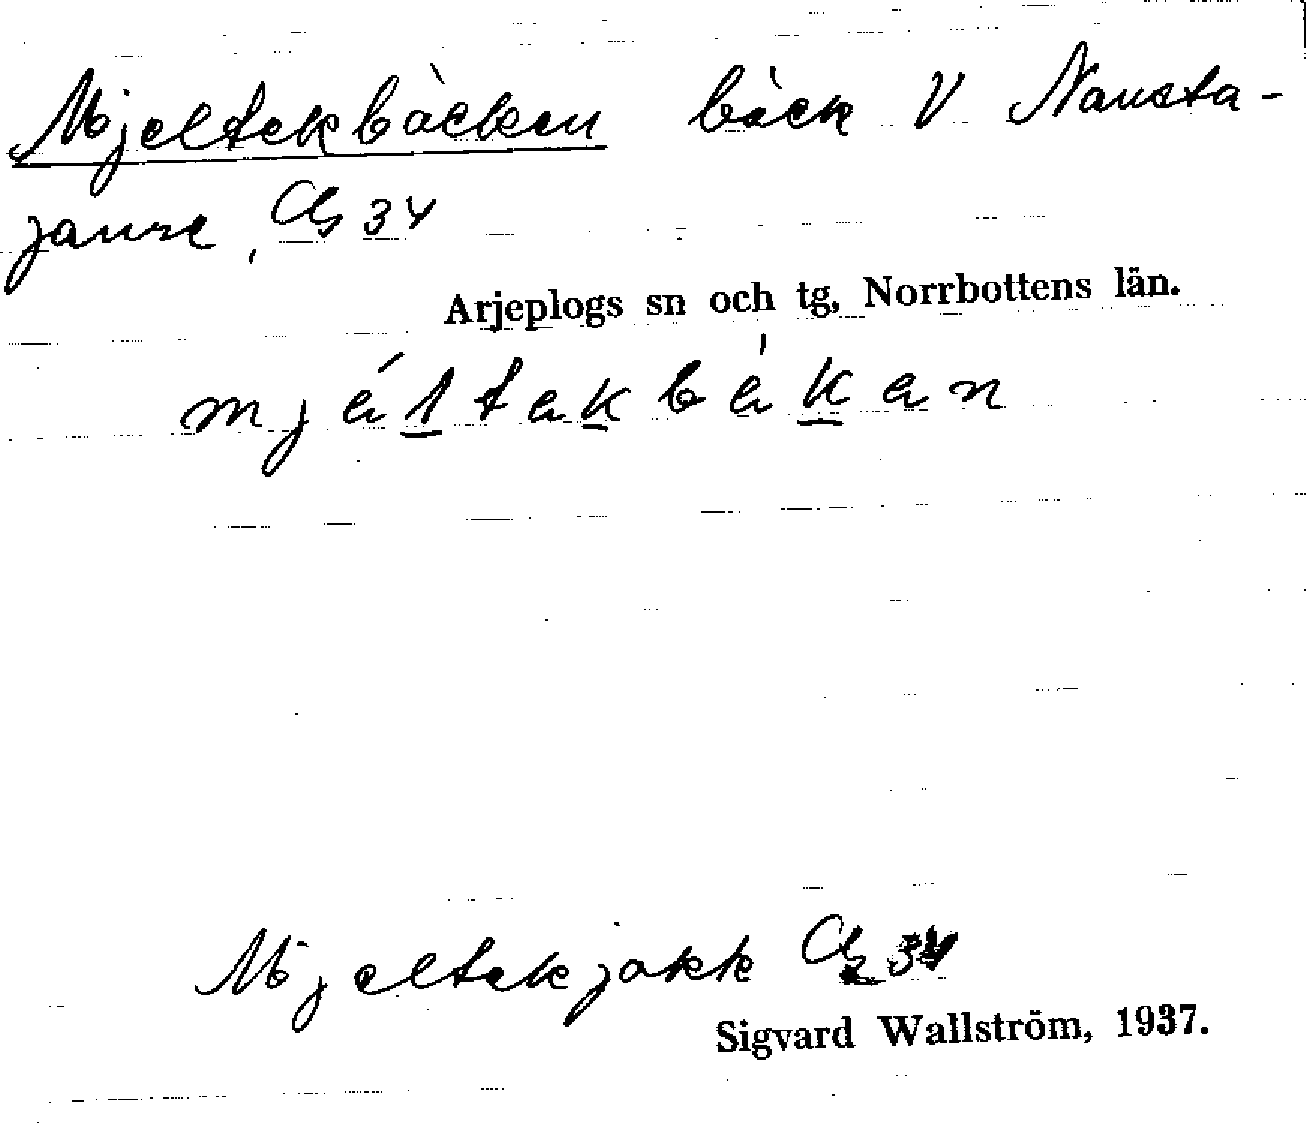 Mjeltekbäcken bäck V Nausta-
jaure, Gs 34
Arjeplogs sn och tg, Norrbottens län.
mjältakbäkan
Mjeltekjåkk Gs 34
Sigvard Wallström, 1937.